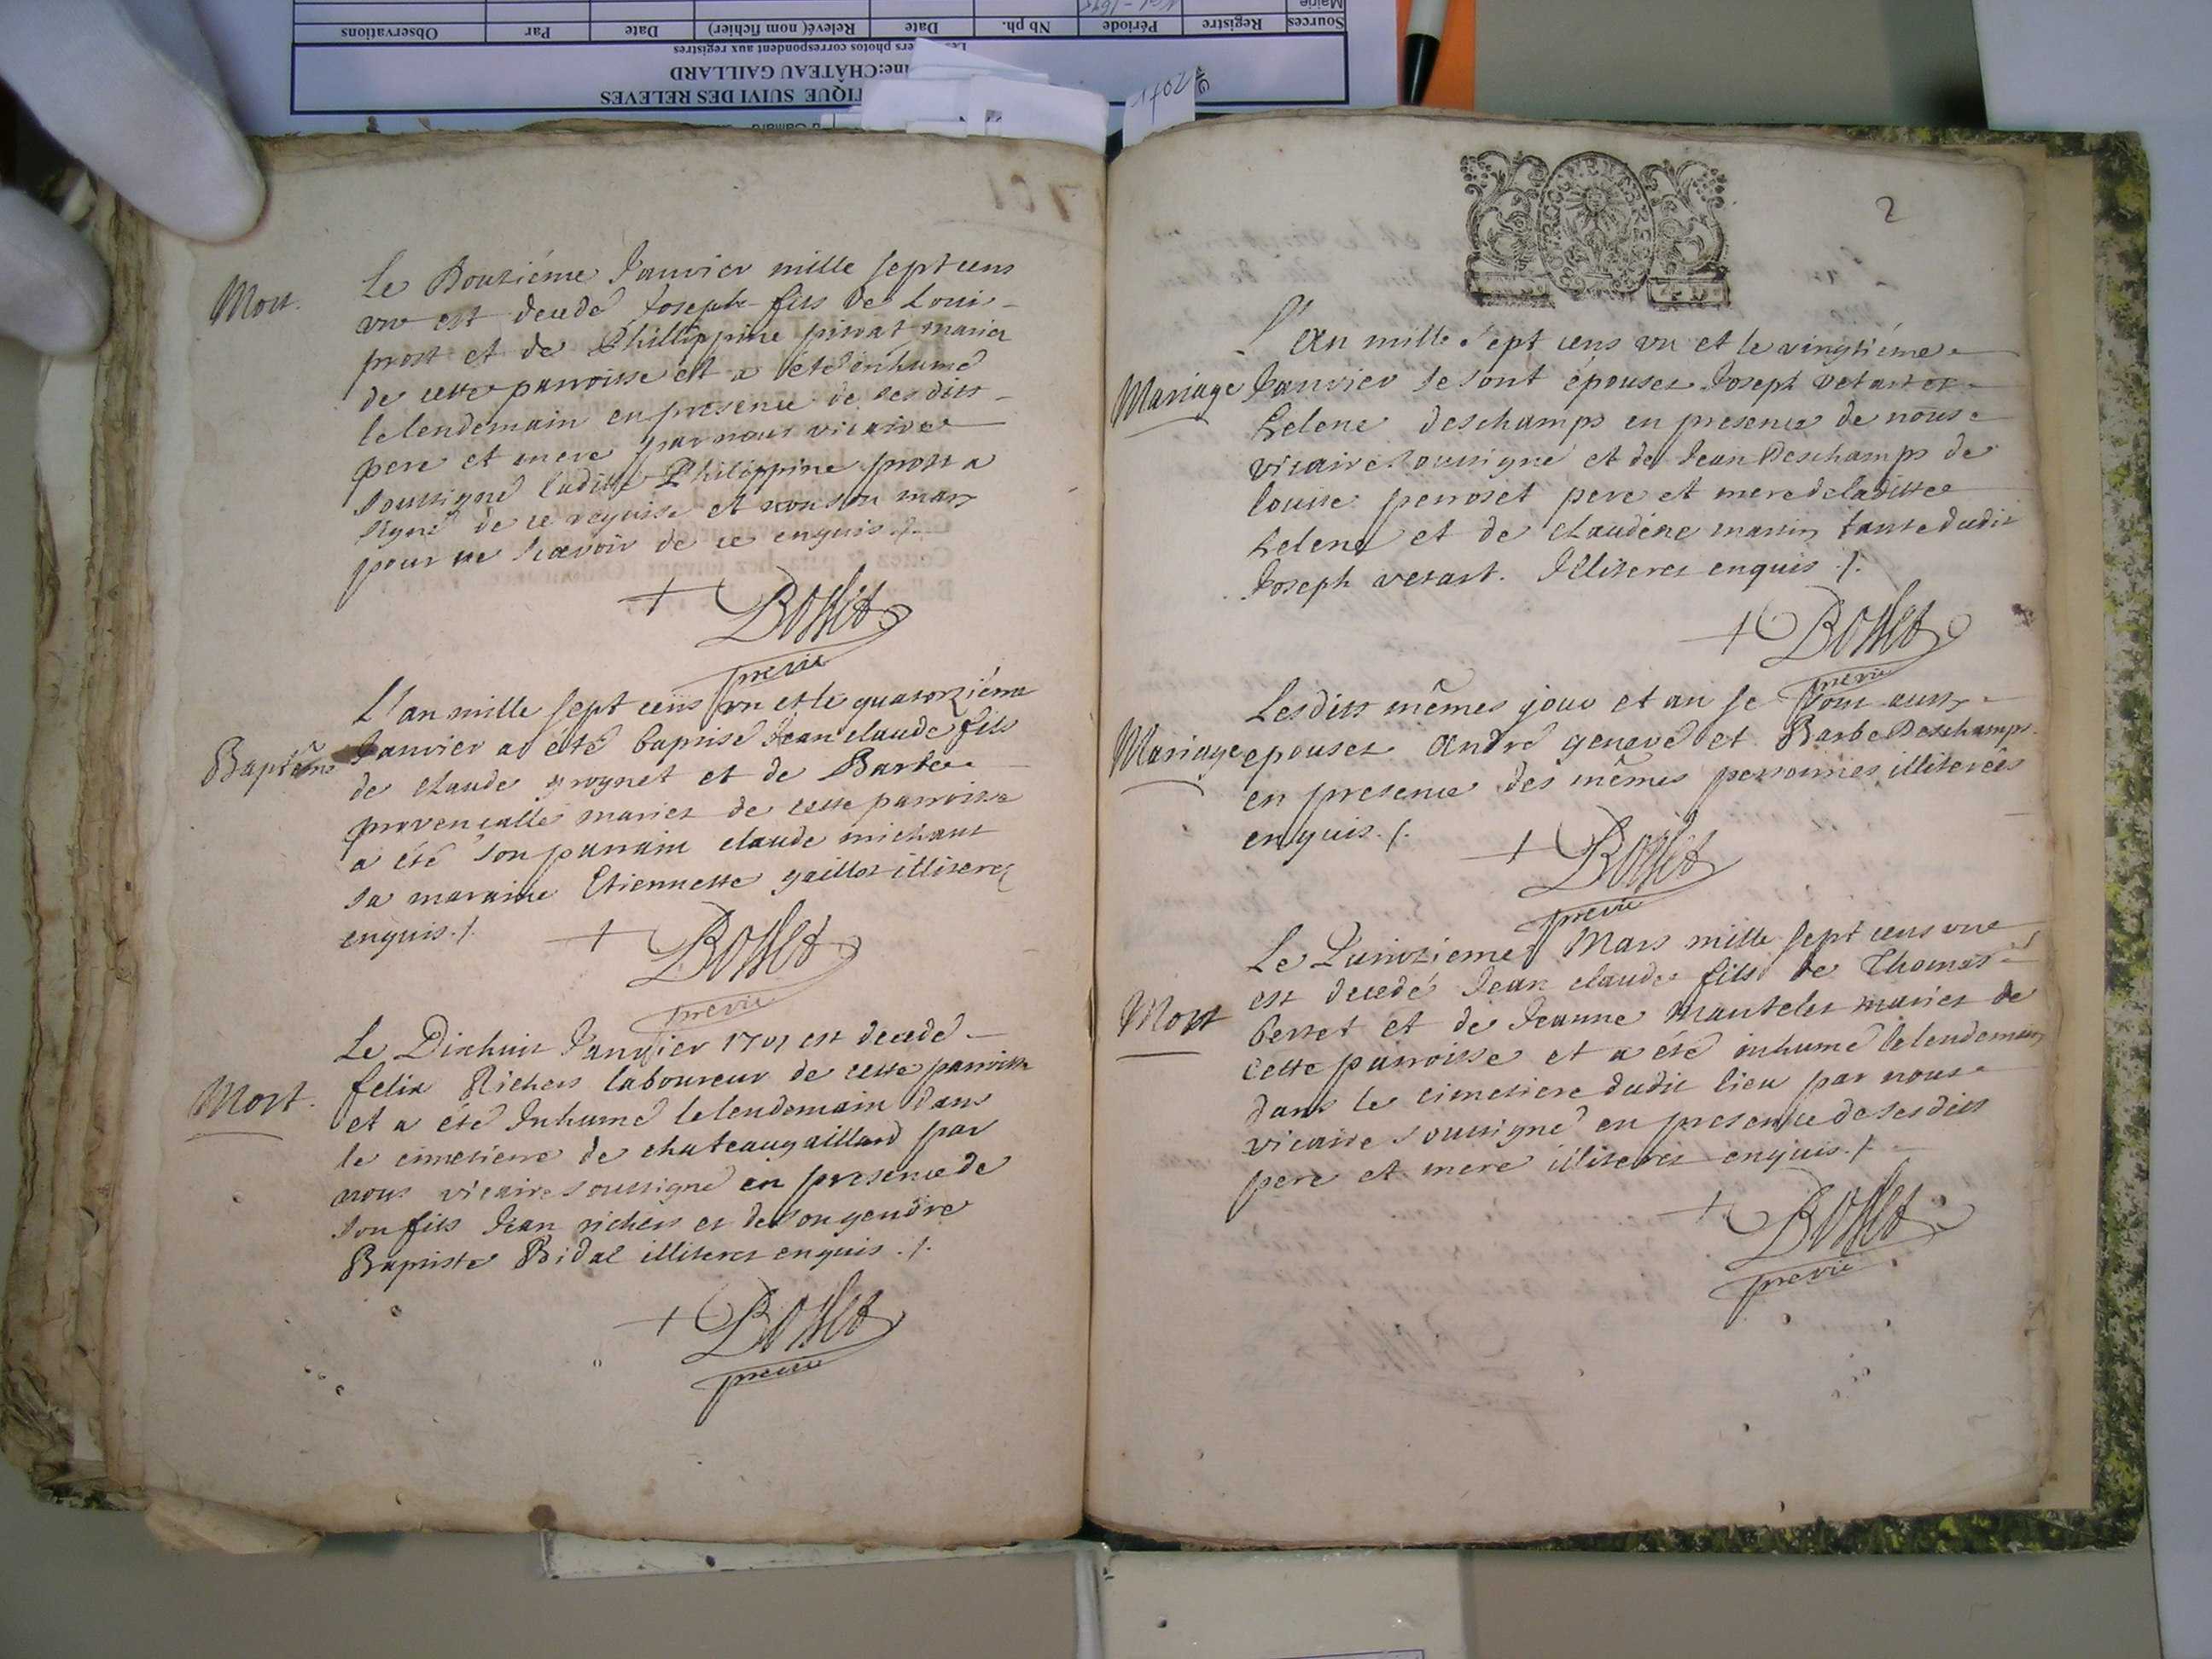 TIQUE SUIVI DES RELEVES
ine:CHÂTEAU GAILLARD
ers photos correspondent aux registres
Sources Registre Période Nb ph. Date Relevé (nom fichier) Date Par Observations
Mairie
1701
Mort.
Le Douziéme Janvier mille sept cens
un est decedé Joseph fils de Loui
prost et de Phillippine pivvat mariez
de cette parroisse et a été enhumé
le lendemain en presence de ses dits
pere et mere par nous vicaire
soussigné laditte Philippine prost a
signé de ce requise et non son mary
pour ne scavoir de ce enquis ./.
+ Bosset
previc
Baptéme
L'an mille sept cens un et le quatorziéme
Janvier a été baptisé Jean claude fils
de claude grognet et de Barbe
provençalle mariez de cette parroisse
a été son parrain claude michaut
sa maraine Etiennette gaillot illiterez
enquis ./.
+ Bosset
previc
Mort.
Le Dixhuit Janvier 1701 est decedé
felix Richers laboureur de cette parroisse
et a été Inhumé le lendemain dans
le cimetiere de chateaugaillard par
nous vicaire soussigné en presence de
son fils Jean richers et de son gendre
Baptiste Bidal illiterez enquis ./.
+ Bosset
previc
2
L'An mille sept cens un et le vingtiéme
Mariage Janvier se sont épousez Joseph vetart et
helene deschamps en presence de nous
vicaire soussigné et de Jean Deschamps de
louise perroset pere et mere de laditte
helene et de claudine martin tante dudit
Joseph vetart. Illiterez enquis ./.
+ Bosset
previc
Lesdits mêmes jour et an se sont aussy
Mariage epousez André genevé et Barbe Deschamps
en presence des mêmes personnes illiterées
enquis ./.
+ Bosset
previc
Le Quinzieme Mars mille sept cens un
Mort est decedé Jean claude fils de Thomas
berset et de Jeanne Mantelet mariez de
cette parroisse et a été inhumé le lendemain
dans le cimetiere dudit lieu par nous
vicaire soussigné en presence de ses dits
pere et mere illiterez enquis ./.
+ Bosset
previc